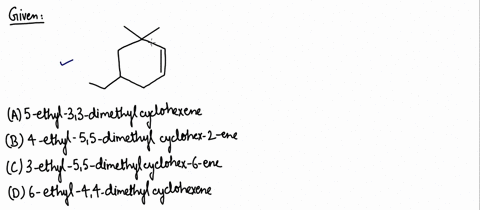 Given:
(A) 5-ethyl-3,3-dimethylcyclohexene
(B) 4-ethyl-5,5-dimethyl cyclohex-2-ene
(C) 3-ethyl-5,5-dimethylcyclohex-6-ene
(D) 6-ethyl-4,4-dimethylcyclohexene